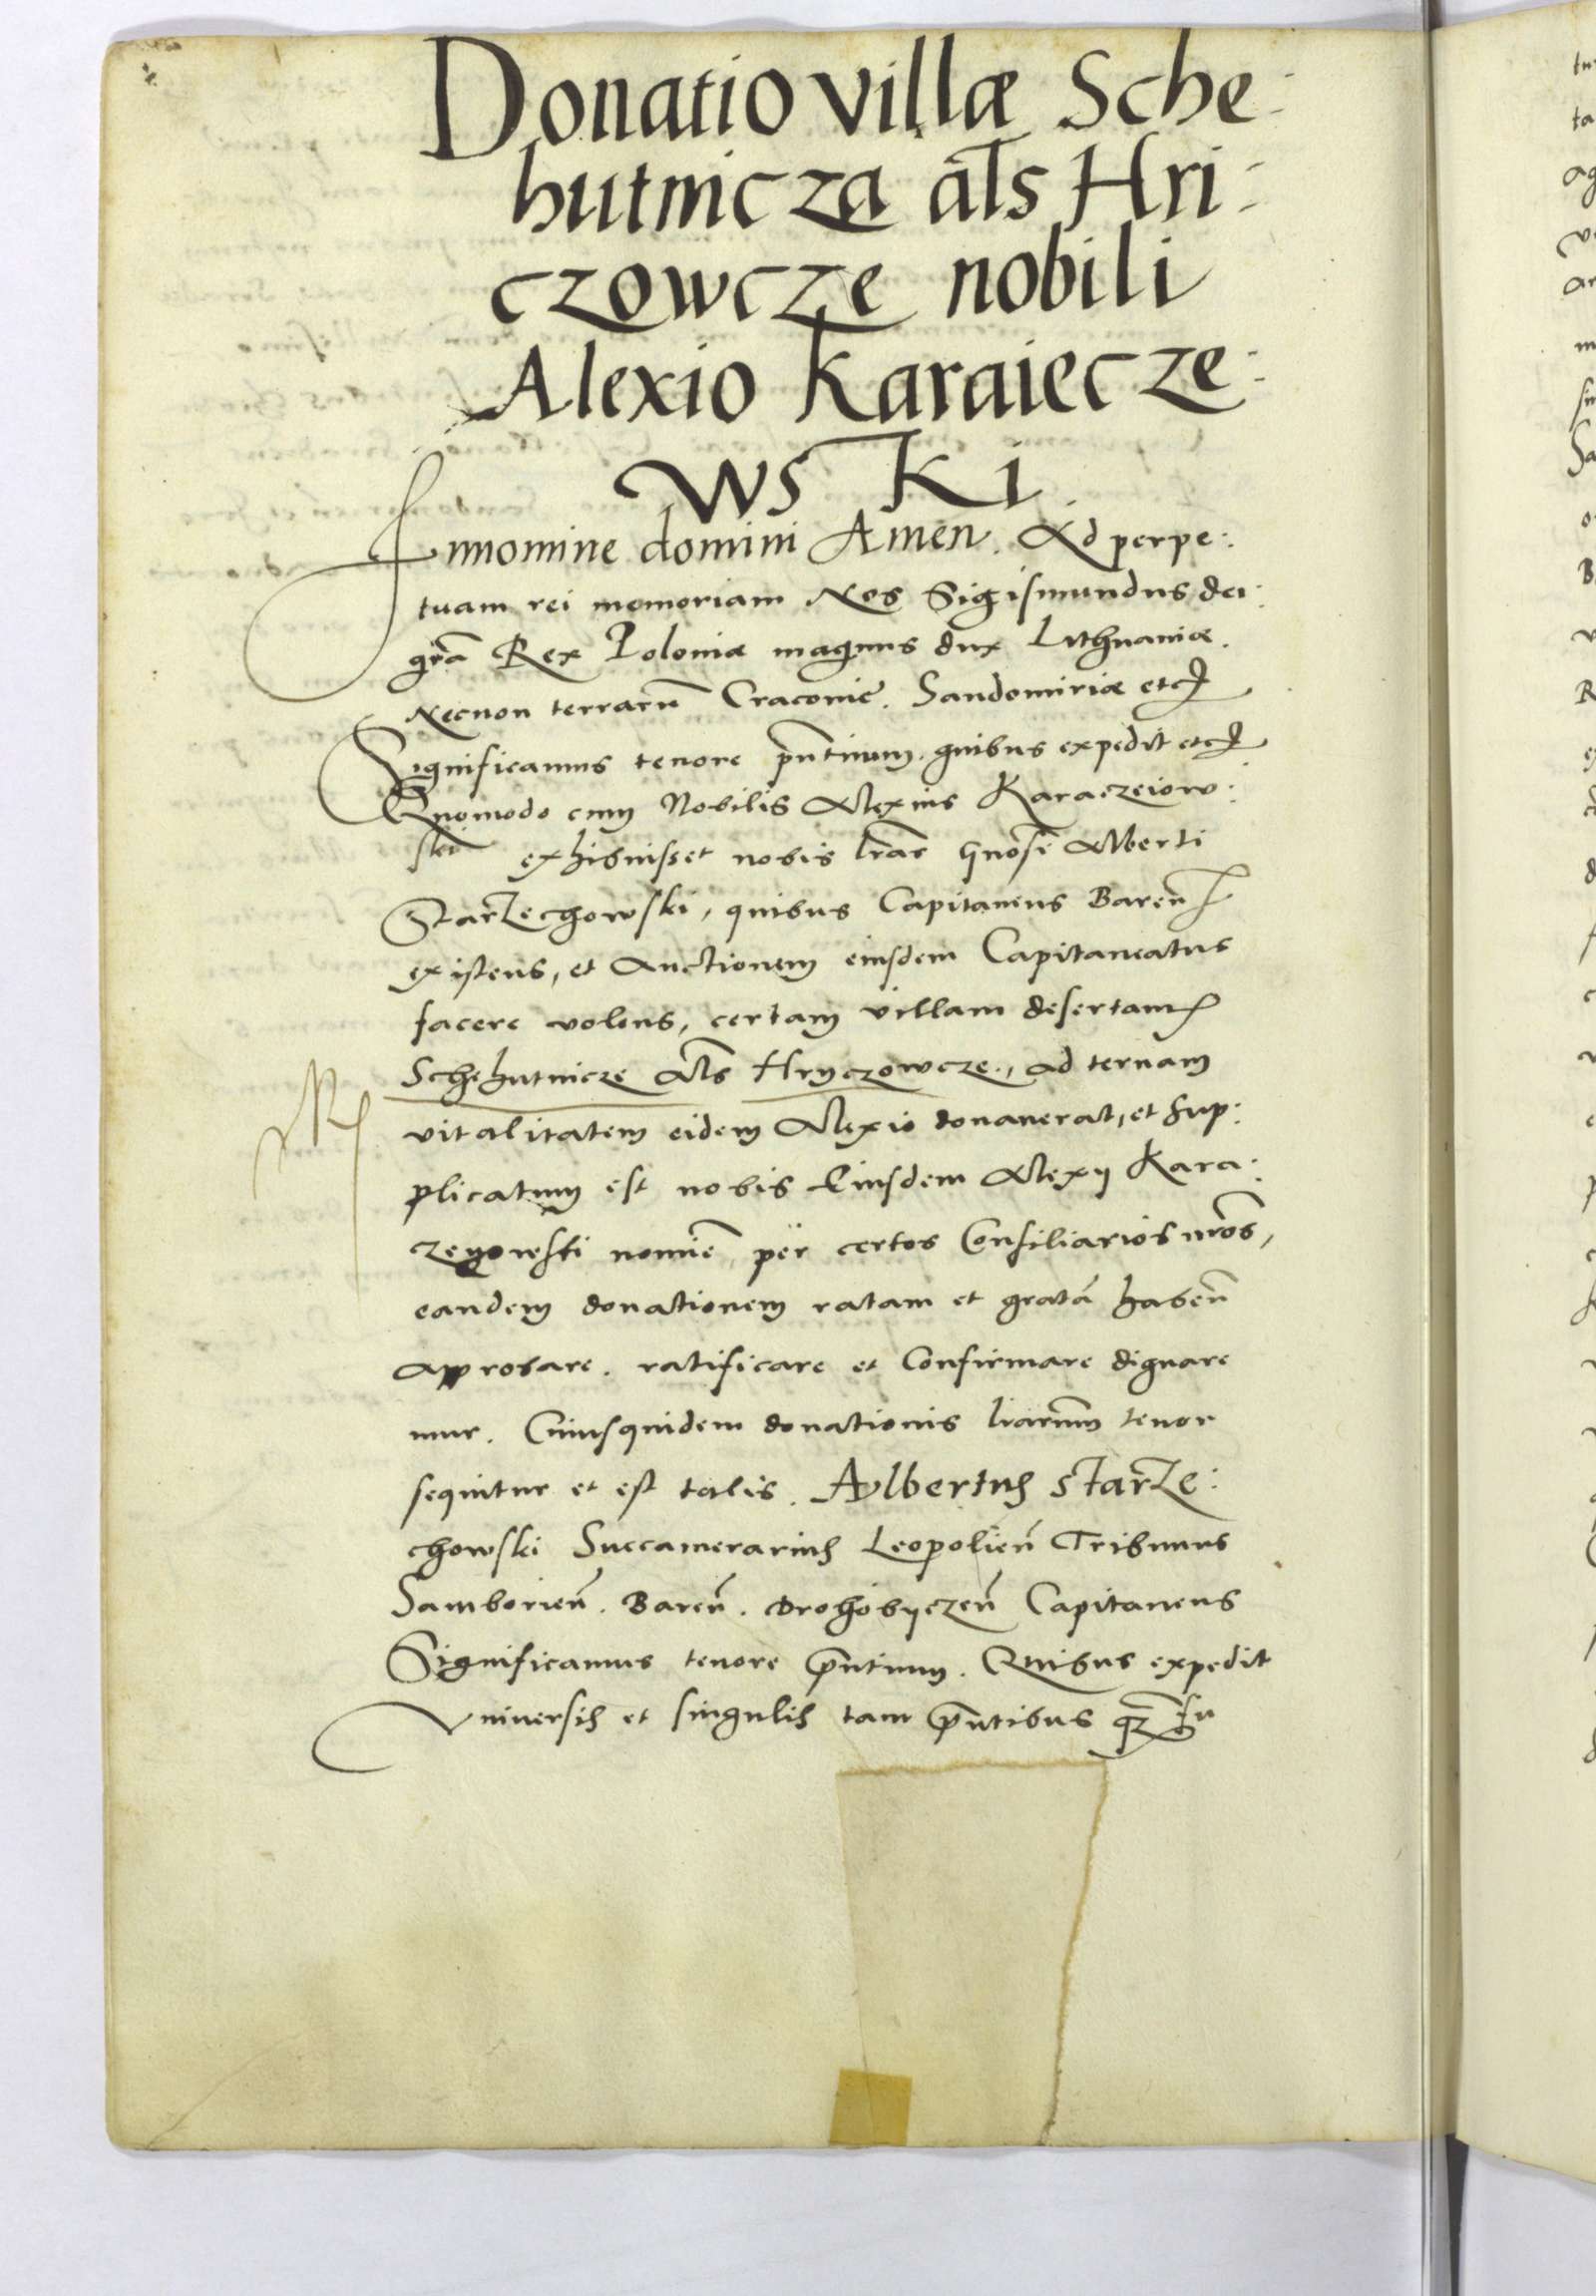 Donatio villæ Sche:
hutnicza al̄s Hri:
czowcze nobili
Alexio Karaiecze:
wski
Innomine domini Amen. Ad perpe:
tuam rei memoriam Nos Sigismundus dei:
gr̄a Rex Poloniæ magnus dux Lithuaniæ.
Necnon terrarū Cracoviē. Sandomiriæ etc
Significamus tenore pn̄tium. quibus expedit etc
Quomodo cum Nobilis Alexius Karaczeiow:
ski exhibuisset nobis lr̄as Gnosi Alberti
Starzechowski, quibus Capitaneus Baren̄
existens, et Auctionem eiusdem Capitaneatus
facere volens, certam villam desertam
Schehutnicze al̄s Hryczowcze., ad ternam
vitalitatem eidem Alexio donauerat, et sup:
plicatum est nobis Eiusdem Alexij Kara:
zeyowski nomiē per certos Consiliarios nr̄os,
eandem donationem ratam et gratā haben̄
approbare. ratificare et Confirmare dignare
mur. Cuiusquidem donationis lrarum tenor
sequitur et est talis. Albertus Starze:
chowski Succamerarius Leopolien̄ Tribunus
Samborien̄. Baren̄. Drohobyczen̄ Capitaneus
Significamus tenore pn̄tium. Quibus expedit
Vniversis et singulis tam pn̄tibus qz fu